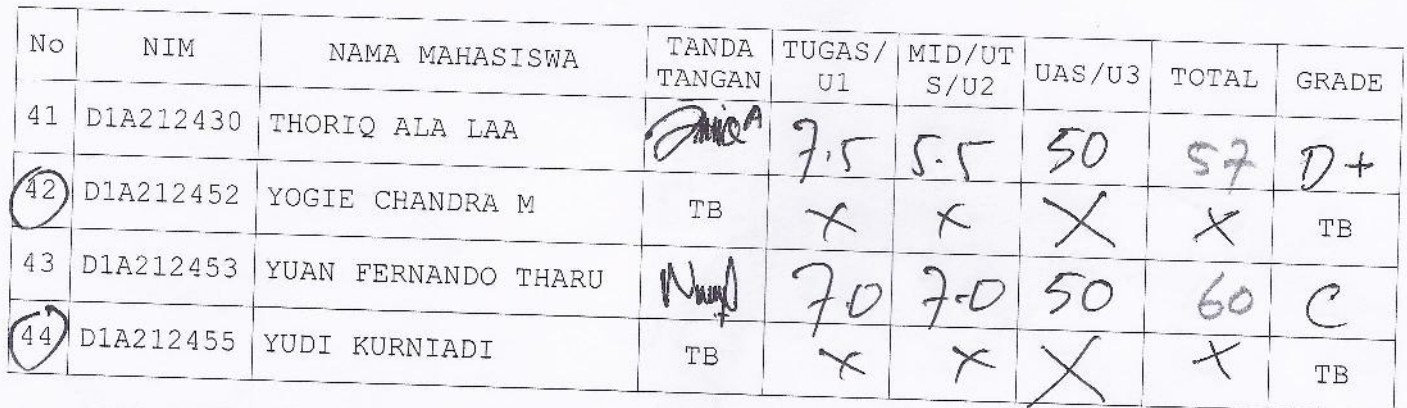 No NIM NAMA MAHASISWA TANDA TANGAN TUGAS/U1 MID/UTS/U2 UAS/U3 TOTAL GRADE
41 D1A212430 THORIQ ALA LAA 7.5 5.5 50 57 D+
42 D1A212452 YOGIE CHANDRA M TB X X X X TB
43 D1A212453 YUAN FERNANDO THARU 7.0 7.0 50 60 C
44 D1A212455 YUDI KURNIADI TB X X X X TB